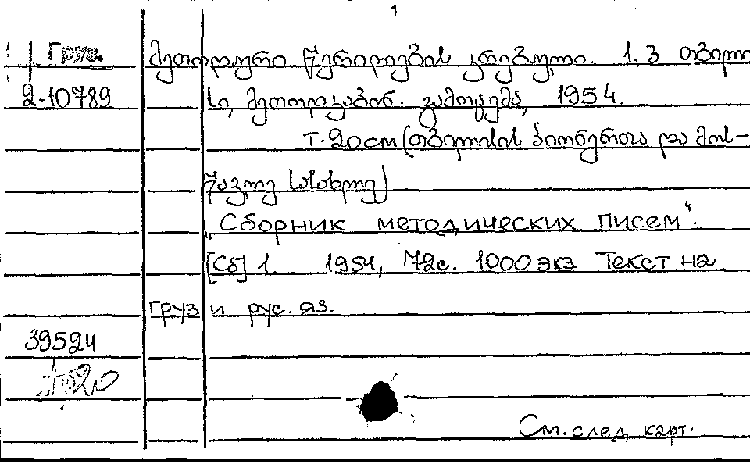 1
Груз. მეთოდური წერილების კრებული. 1. 3 თბილი
2-10789 სი, მეთოდკაბინ. გამოცემა, 1954.
т. 20см (თბილისის პიონერთა და მოს-
წავლე სასახლე)
„Сборник методических писем".
[Сб] 1. 1954, 72с. 1000 экз Текст на
груз и рус. яз.
39524
См. след. карт.